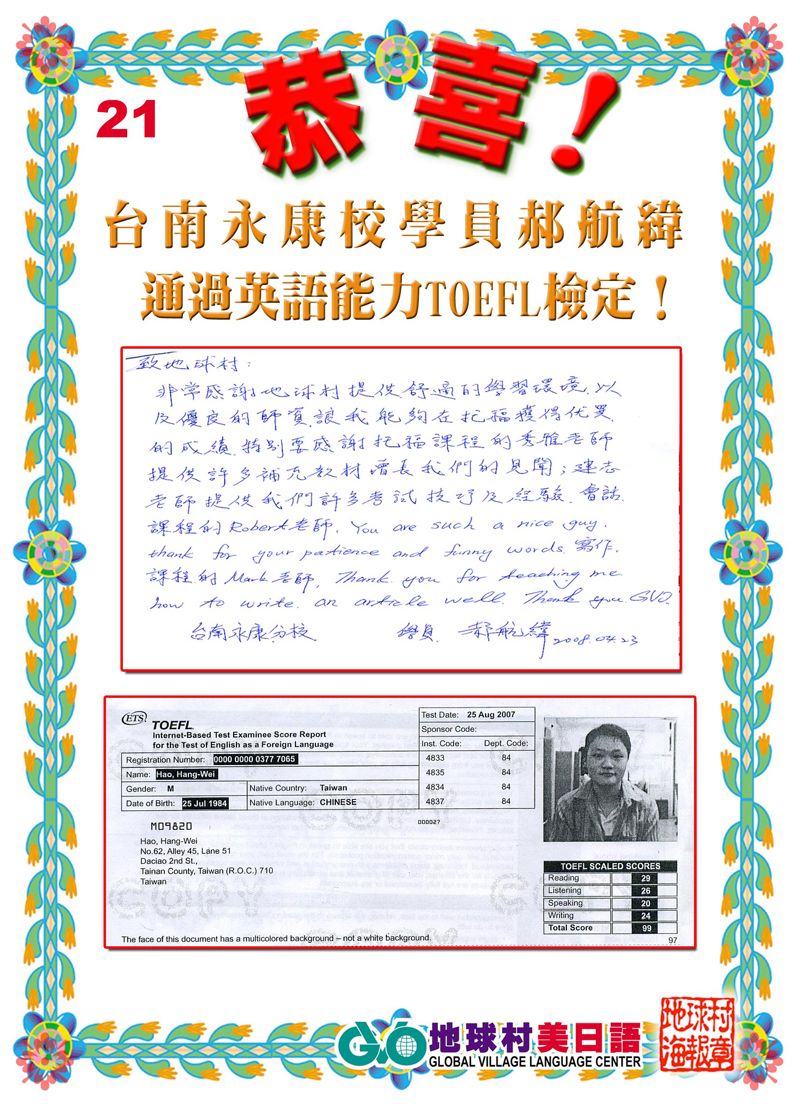 恭喜!
21
台南永康校學員郝航緯
通過英語能力TOEFL檢定！
致地球村：
非常感謝地球村提供舒適的學習環境.以
及優良的師資讓我能夠在托福獲得优異
的成績.特別要感謝托福課程的秀雅老師
提供許多補充教材增長我們的見聞；建志
老師提供我們許多考試技巧及經驗.會話
課程的Robert老師. You are such a nice guy.
thank for your patience and funny words. 寫作.
課程的Mark老師, Thank you for teaching me
how to write an article well. Thank you GVO.
台南永康分校 學員 郝航緯 2008.04.23
ETS TOEFL
Internet-Based Test Examinee Score Report
for the Test of English as a Foreign Language
Registration Number: 0000 0000 0377 7065
Name: Hao, Hang-Wei
Gender: M Native Country: Taiwan
Date of Birth: 25 Jul 1984 Native Language: CHINESE
Test Date: 25 Aug 2007
Sponsor Code:
Inst. Code: Dept. Code:
4833 84
4835 84
4834 84
4837 84
000027
M09820
Hao, Hang-Wei
No.62, Alley 45, Lane 51
Daciao 2nd St.,
Tainan County, Taiwan (R.O.C.) 710
Taiwan
COPY
TOEFL SCALED SCORES
Reading 29
Listening 26
Speaking 20
Writing 24
Total Score 99
The face of this document has a multicolored background – not a white background.
97
GVO 地球村美日語
GLOBAL VILLAGE LANGUAGE CENTER
地球村
海報章